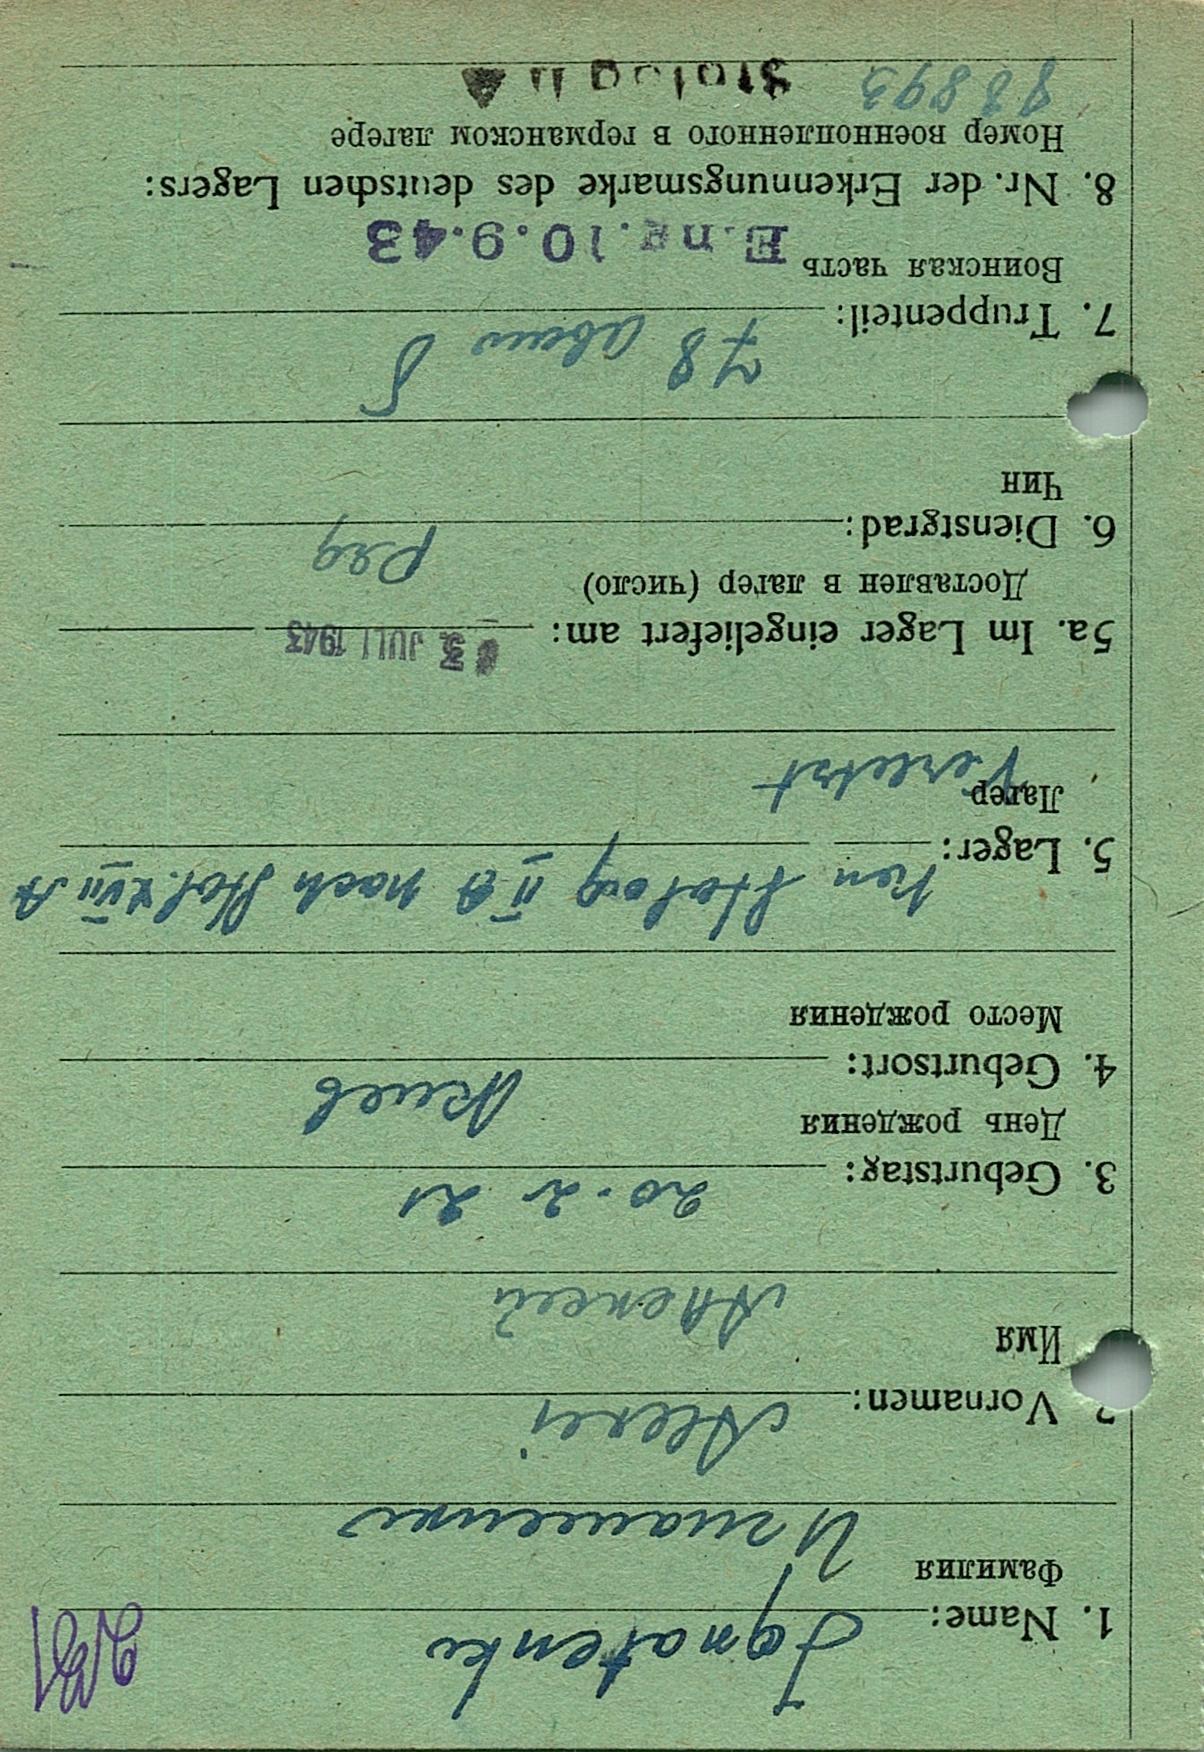 1. Name: Ignatenko
Фамилия Игнатенко
2. Vornamen: Alexei
Имя Алексей
3. Geburtstag: 20.2 21
День рождения
4. Geburtsort: Киев
Место рождения
5. Lager: von Stalag II A nach Stal. XVII A
Лагер Versetzt
5a. Im Lager eingeliefert am: 3. JULI 1943
Доставлен в лагер (число)
6. Dienstgrad: ряд
Чин
7. Truppenteil: 78
Воинская часть
E. ng. 10.9.43
8. Nr. der Erkennungsmarke des deutschen Lagers:
Номер военнопленного в германском лагере
Stalag II A